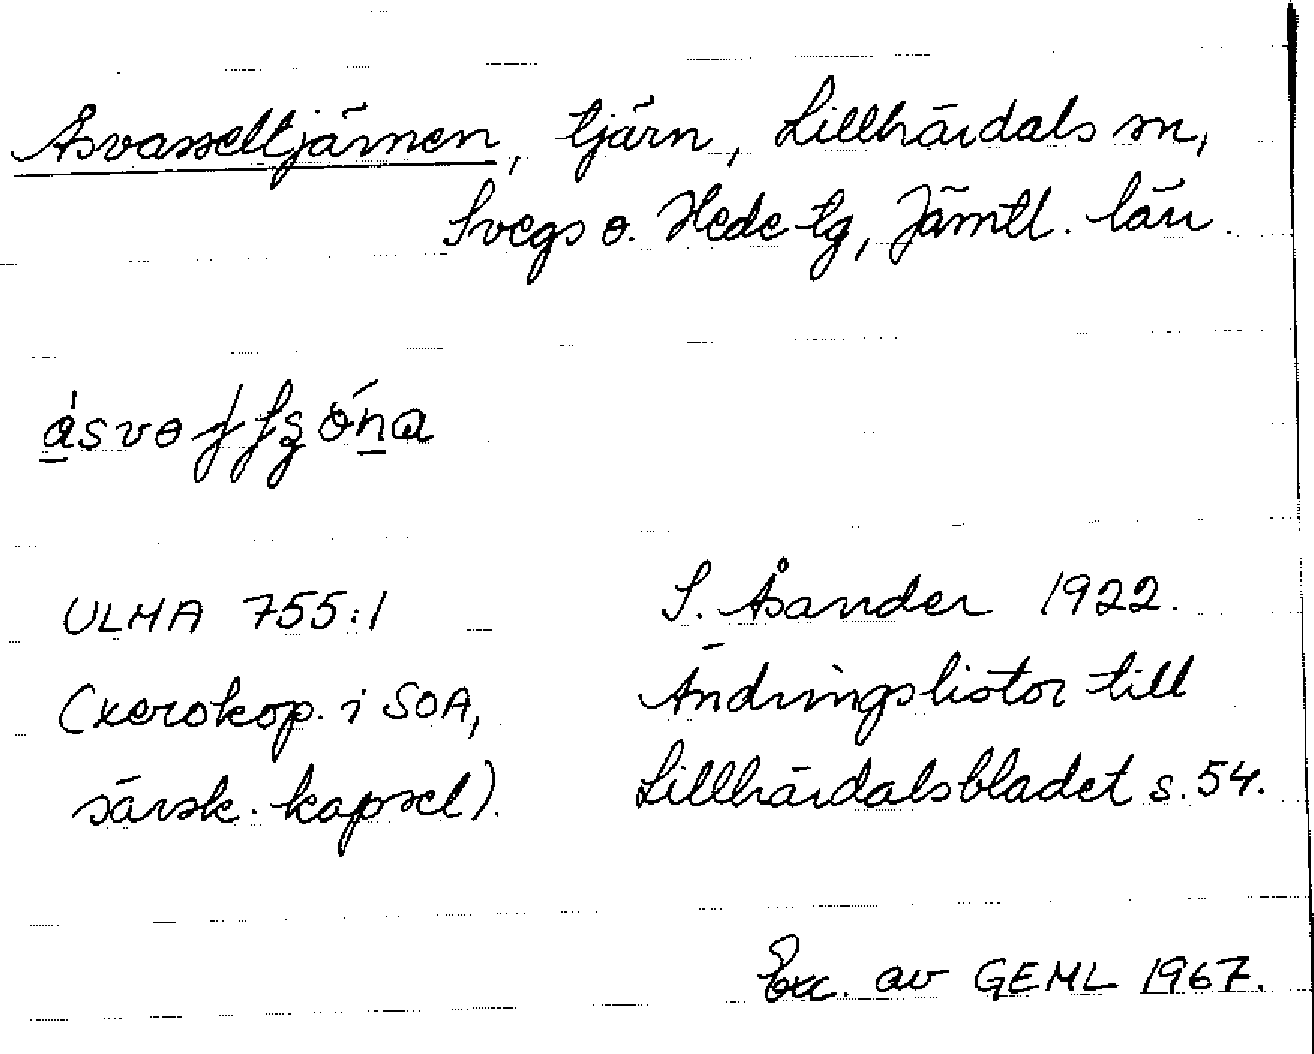 Åsvasseltjärnen, tjärn, Lillhärdals sn,
Svegs o. Hede tg, Jämtl. län.
ULMA 755:1
S. Åsander 1922.
(xerokop. i SOA,
Ändringslistor till
särsk. kapsel).
Lillhärdalsbladet s. 54.
Exc. av GEML 1967.